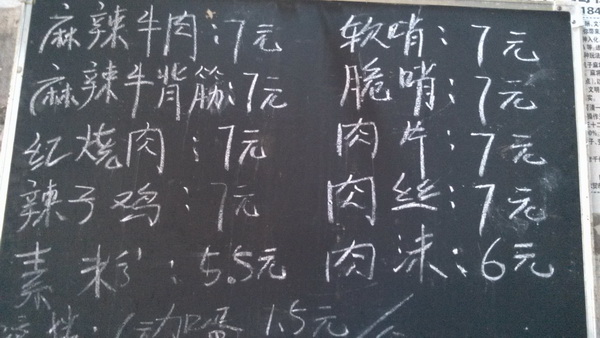 麻辣牛肉:7元
麻辣牛背筋:7元
红烧肉:7元
辣子鸡:7元
素粉:5.5元
加蛋 1.5元
软哨:7元
脆哨:7元
肉片:7元
肉丝:7元
肉沫:6元